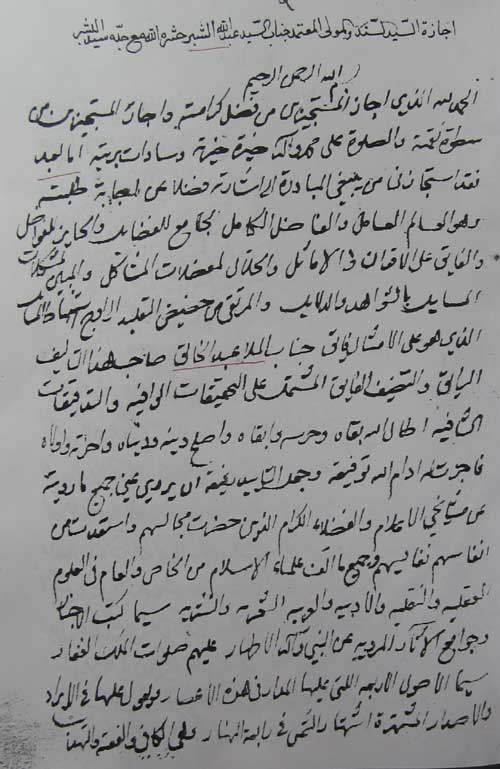 اجازة السيد السند والمولى المعتمد جناب السيد عبدالله الشبر حشره الله مع جده سيد البشر
بسم الله الرحمن الرحيم
الحمد لله الذي اجاز المستجيزين من فضل كرامته واجار المستجيرين من
سطوة نقمته والصلوة على محمد وآله خيرة خيرته وسادات بريته اما بعد
فقد استجازني من ينبغي المبادرة الى اشارته فضلا عن اجابة طلبته
وهو العالم العامل والفاضل الكامل الجامع للفضايل والحايز للفواضل
والفايق على الاقران والاماثل والحلال لمعضلات المشاكل والمبين لمشكلات
المسايل بالشواهد والدلايل والمرتقي من حضيض التقليد الى اوج استنباط المسائل
الذي هو على الامثال فائق جناب الملا عبد الخالق صاحب هذا التاليف
الرايق والتصنيف الفايق المشتمل على التحقيقات الوافيه والتدقيقات
الشافيه اطال الله بقاه وحرسه وابقاه واصلح دينه ودنياه واخرته واولاه
فاجزت له ادام الله توفيقه وجعل التاييد رفيقه ان يروي عني جميع ما رويته
عن مشايخي الاعلام والفضلاء الكرام الذين حضرت مجالسهم واستفدت من
انفاسهم نفايسهم وجميع ما الف علماء الاسلام من الخاص والعام في العلوم
العقليه والنقليه والادبيه والعربيه سيما كتب الاخبار
وجوامع الآثار المرويه عن النبي وآله الاطهار عليهم صلوات الملك الغفار
سيما الاصول الاربعه التي عليها المدار في هذه الاعصار والمعول عليها في الايراد
والاصدار المشتهرة اشتهار الشمس في رابعة النهار وهي الكافي والفقيه والتهذيب